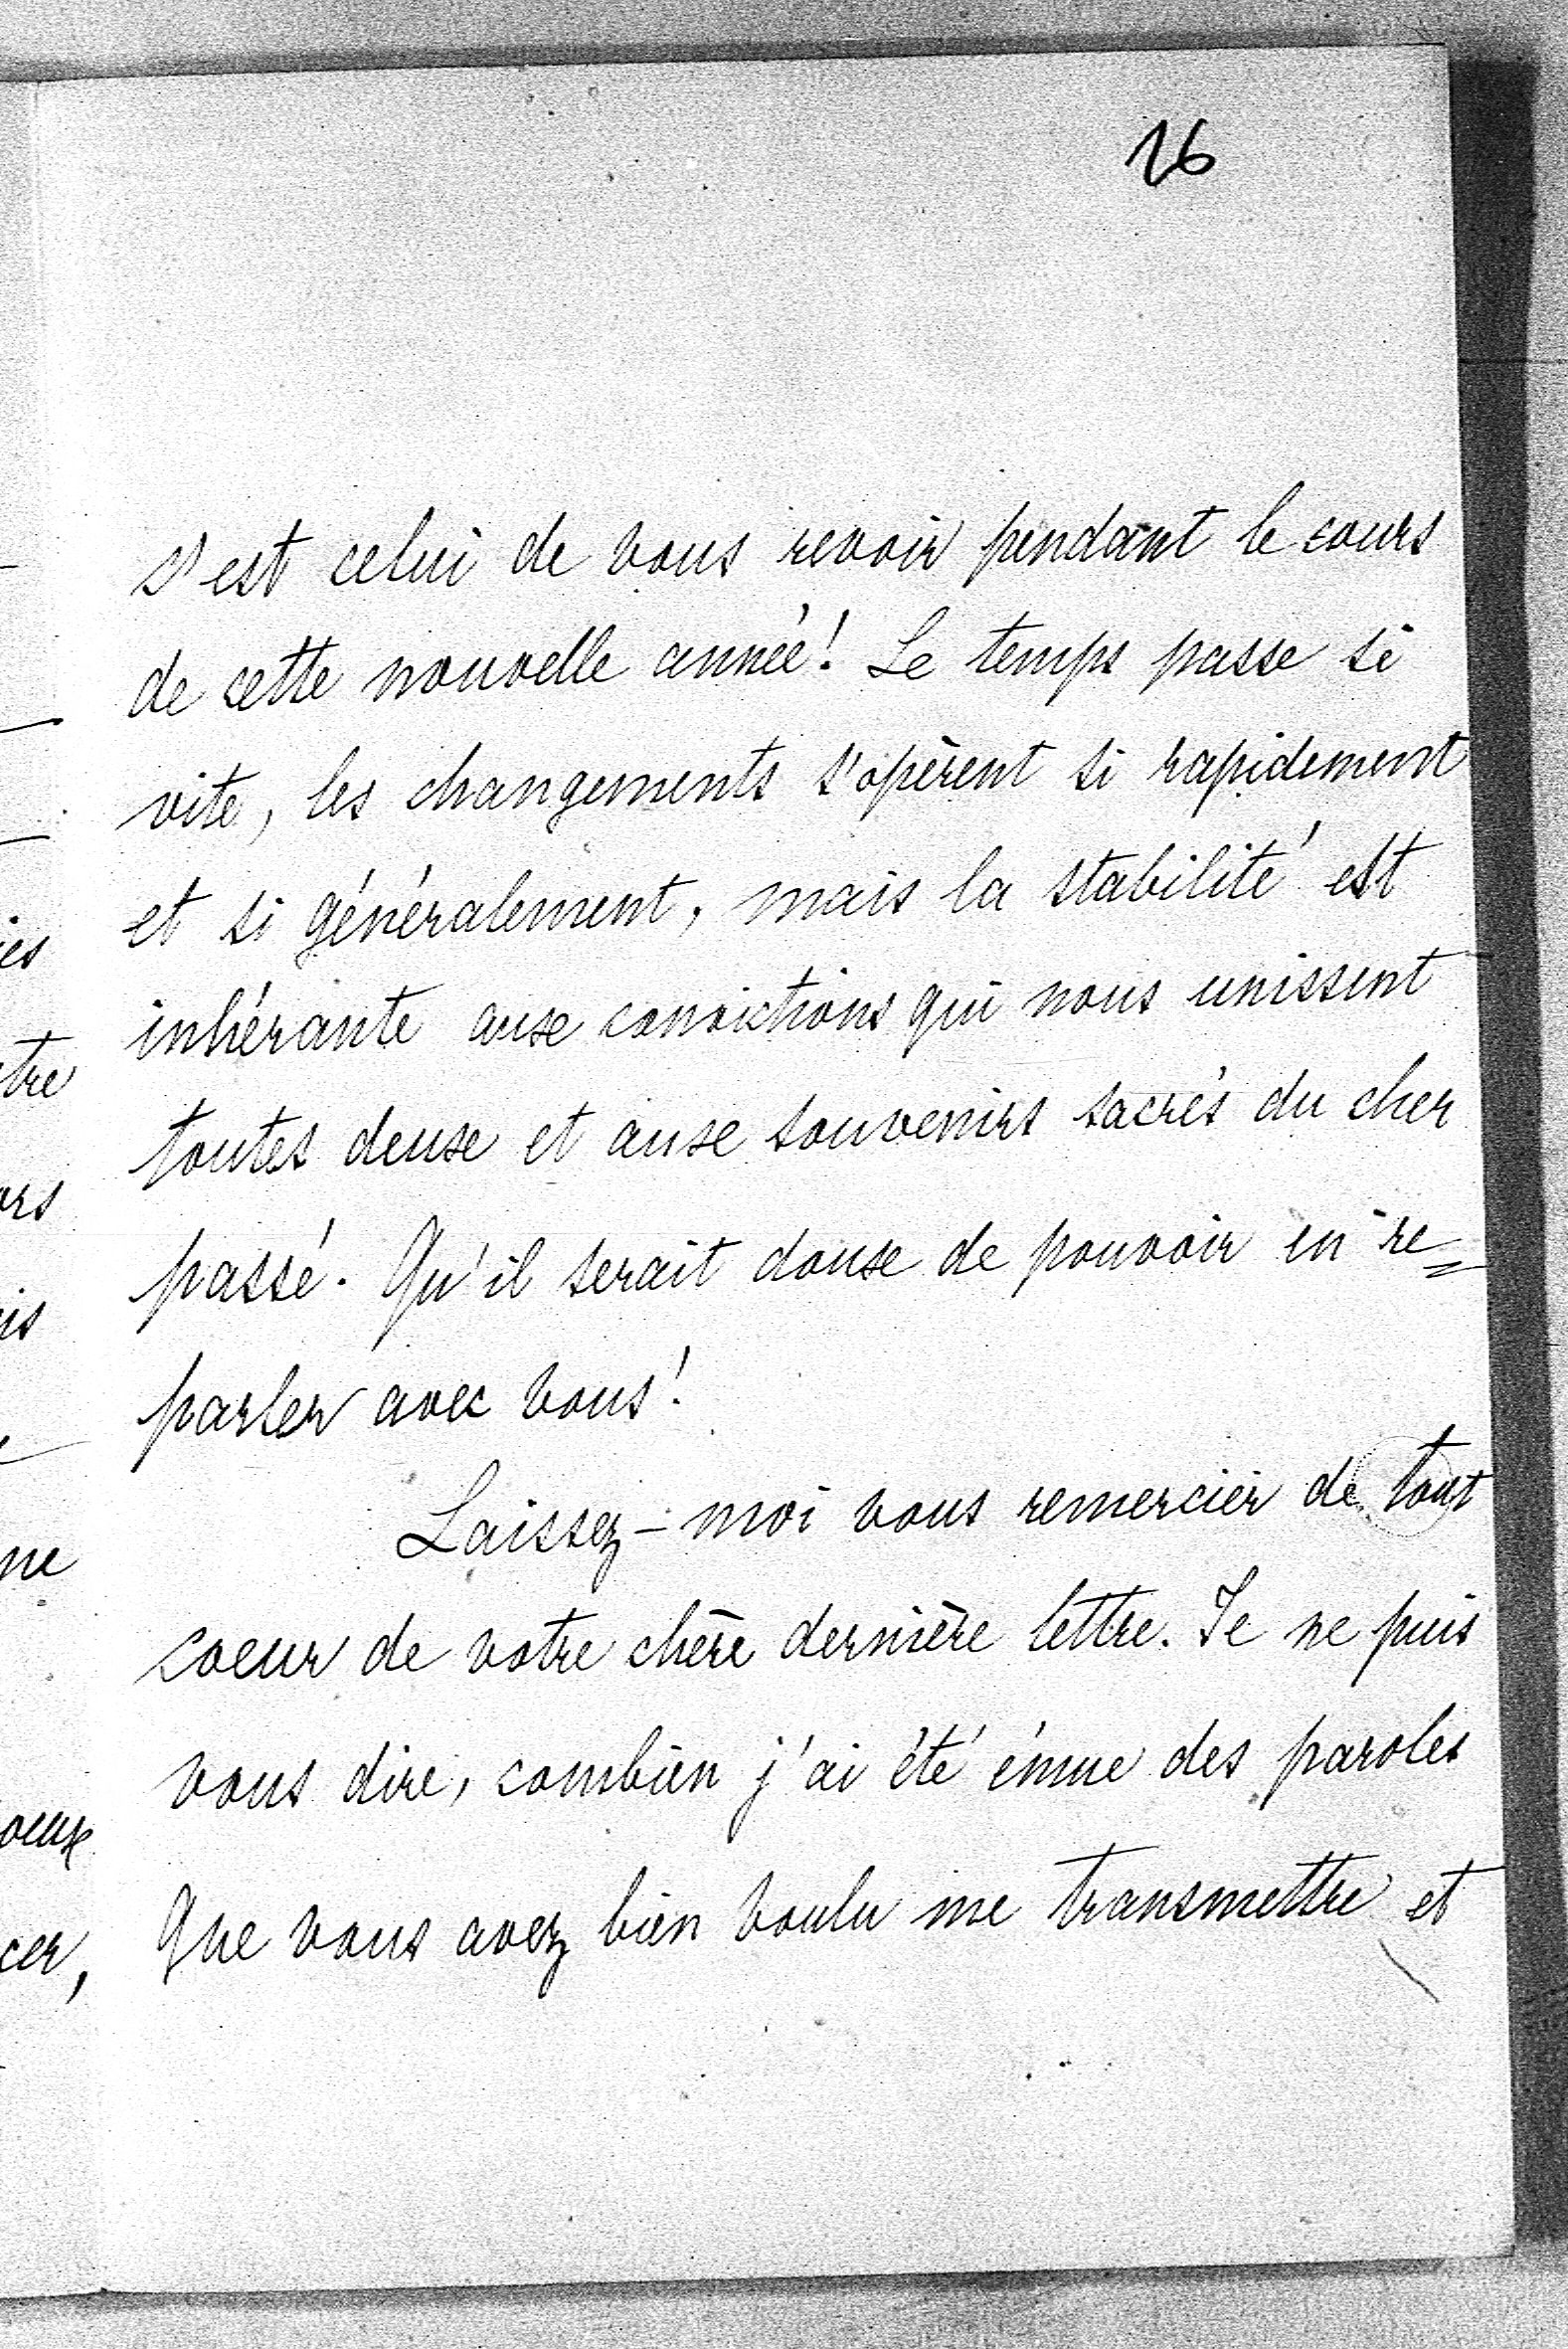 16
c'est celui de vous revoir pendant le cours
de cette nouvelle année! Le temps passe si
vite, les changements s'opèrent si rapidement
et si généralement, mais la stabilité est
inhérante aux convictions qui nous unissent
toutes deux et aux souvenirs sacrés du cher
passé. Qu'il serait doux de pouvoir en re=
parler avec vous!
Laissez-moi vous remercier de tout
coeur de votre chère dernière lettre. Je ne puis
vous dire, combien j'ai été émue des paroles
que vous avez bien voulu me transmettre et